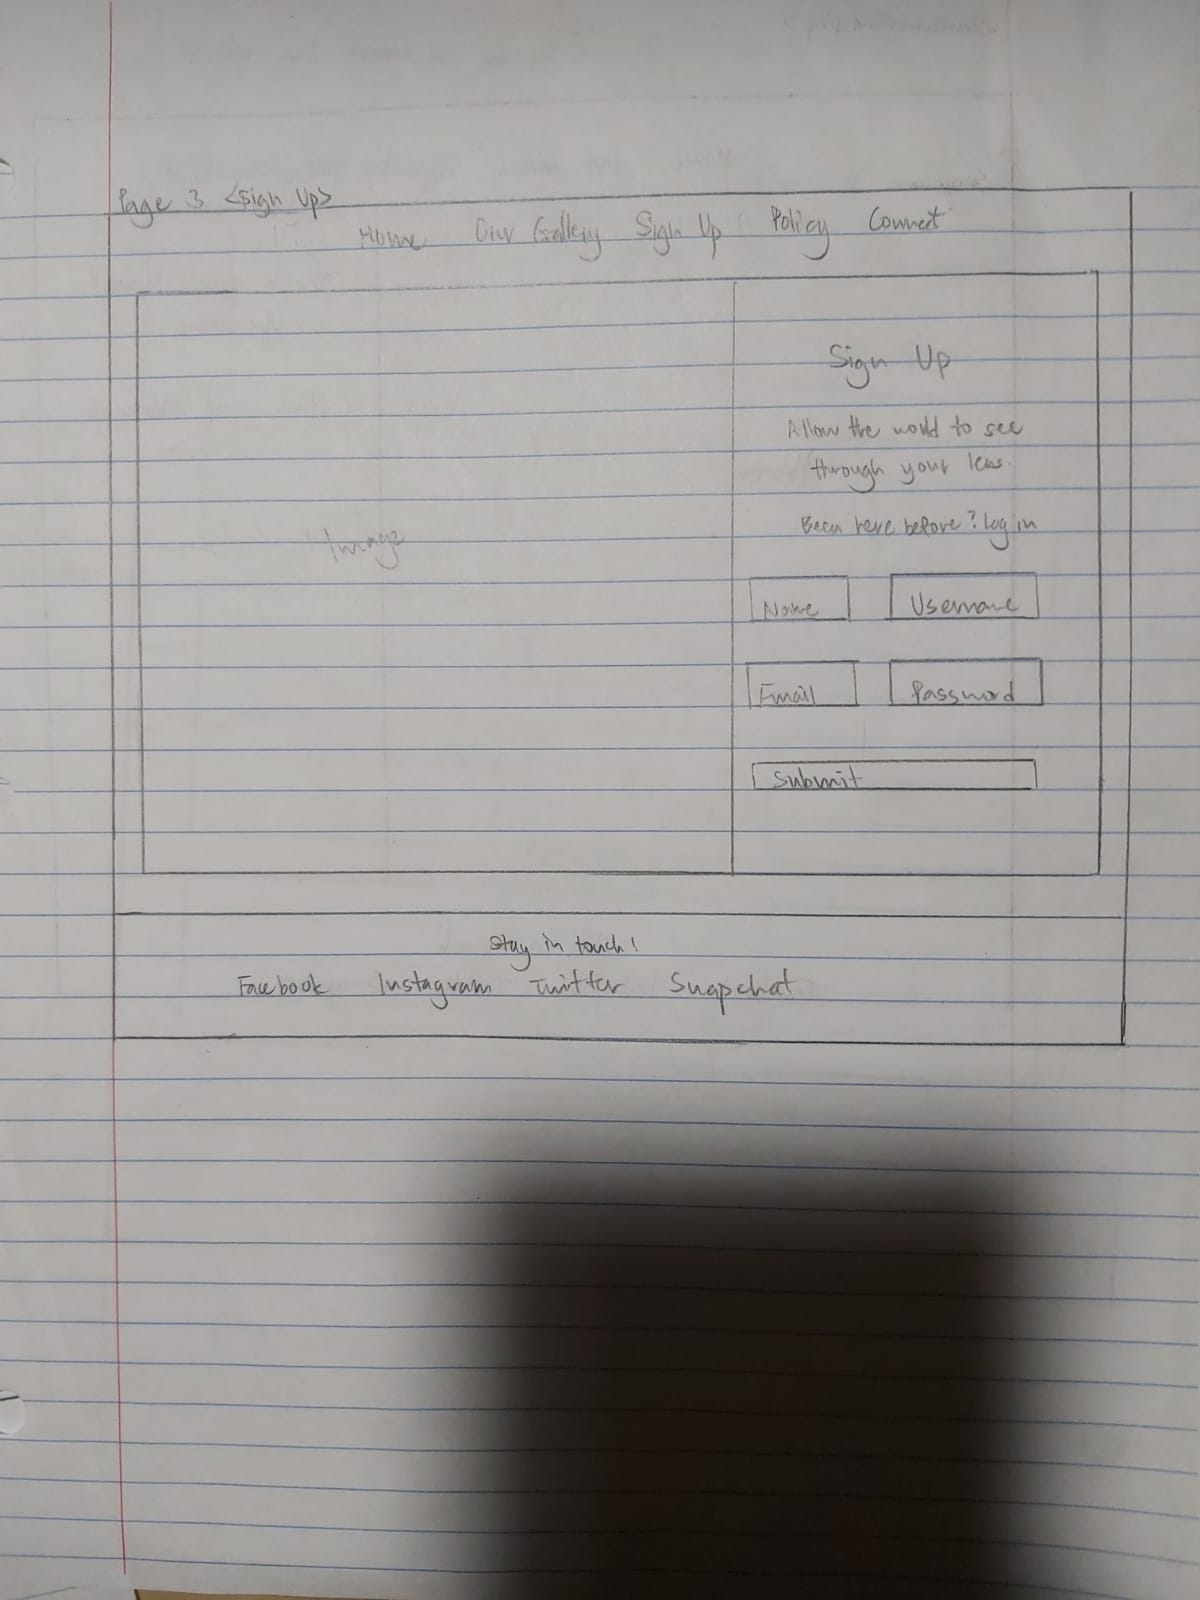 Page 3 <Sign Up>
Home Our Gallery Sign Up Policy Connect
Image
Sign Up
Allow the world to see
through your lens.
Been here before? Log in
Name Username
Email Password
Submit
Stay in touch!
Facebook Instagram Twitter Snapchat